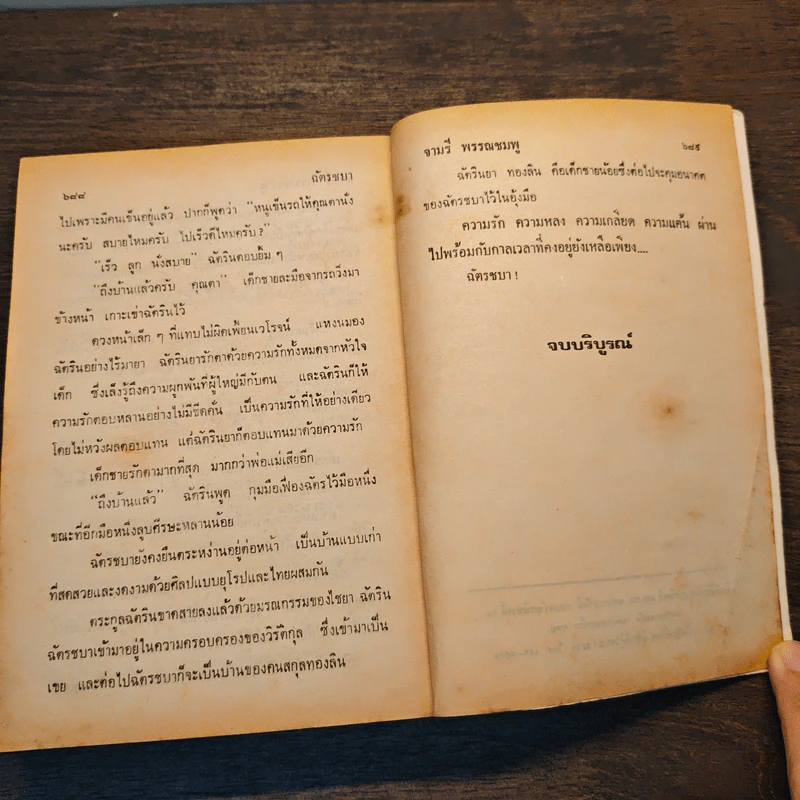 ๖๘๘
ฉัตรชบา
ไปเพราะมีคนเข็นอยู่แล้ว ปากก็พูดว่า “หนูเข็นรถให้คุณตานั่ง
นะครับ สบายไหมครับ ไปเร็วดีไหมครับ?”
“เร็ว ลูก นั่งสบาย” ฉัตรินตอบยิ้ม ๆ
“ถึงบ้านแล้วครับ คุณตา” เด็กชายละมือจากรถวิ่งมา
ข้างหน้า เกาะเข่าฉัตรินไว้
ดวงหน้าเล็ก ๆ ที่แทบไม่ผิดเพี้ยนเวโรจน์ แหงนมอง
ฉัตรินอย่างไร้มายา ฉัตรินยารักตาด้วยความรักทั้งหมดจากหัวใจ
เด็ก ซึ่งเล็งรู้ถึงความผูกพันที่ผู้ใหญ่มีกับตน และฉัตรินก็ให้
ความรักตอบหลานอย่างไม่มีขีดคั่น เป็นความรักที่ให้อย่างเดียว
โดยไม่หวังผลตอบแทน แต่ฉัตรินยาก็ตอบแทนมาด้วยความรัก
เด็กชายรักตามากที่สุด มากกว่าพ่อแม่เสียอีก
“ถึงบ้านแล้ว” ฉัตรินพูด กุมมือเฟื่องฉัตรไว้มือหนึ่ง
ขณะที่อีกมือหนึ่งลูบศีรษะหลานน้อย
ฉัตรชบายังคงยืนตระหง่านอยู่ต่อหน้า เป็นบ้านแบบเก่า
ที่สดสวยและงดงามด้วยศิลปแบบยุโรปและไทยผสมกัน
ตระกูลฉัตรินขาดสายลงแล้วด้วยมรณกรรมของไชยา ฉัตริน
ฉัตรชบาเข้ามาอยู่ในความครอบครองของวิรัติกุล ซึ่งเข้ามาเป็น
เขย และต่อไปฉัตรชบาก็จะเป็นบ้านของคนสกุลทองลิน
จามรี พรรณชมพู
๖๘๙
ฉัตรินยา ทองลิน คือเด็กชายน้อยซึ่งต่อไปจะคุมอนาคต
ของฉัตรชบาไว้ในอุ้งมือ
ความรัก ความหลง ความเกลียด ความแค้น ผ่าน
ไปพร้อมกับกาลเวลาที่คงอยู่ยังเหลือเพียง....
ฉัตรชบา!
จบบริบูรณ์